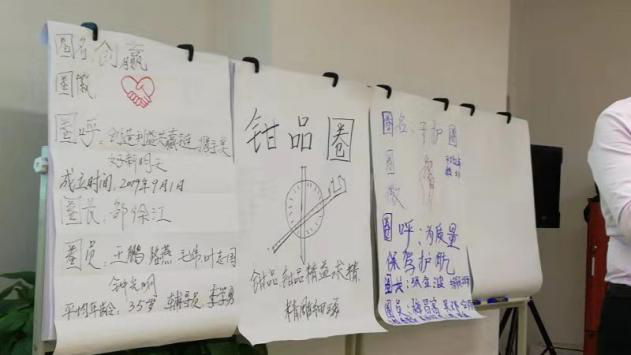 圈名：创赢
圈徽
圈呼：创造利益共赢挺 携手共
好新明天
成立时间，2019年9月1日
圈长：部徐江
圈员：王鹏 陈燕 毛毕 叶志国
钟光明
平均年龄：35岁 辅导员：李
钳品圈
钳品 钳品 精益求精
精雕细琢
圈名：守护圈
圈徽
圈呼：为质量
保驾护航
圈长：
圈员：